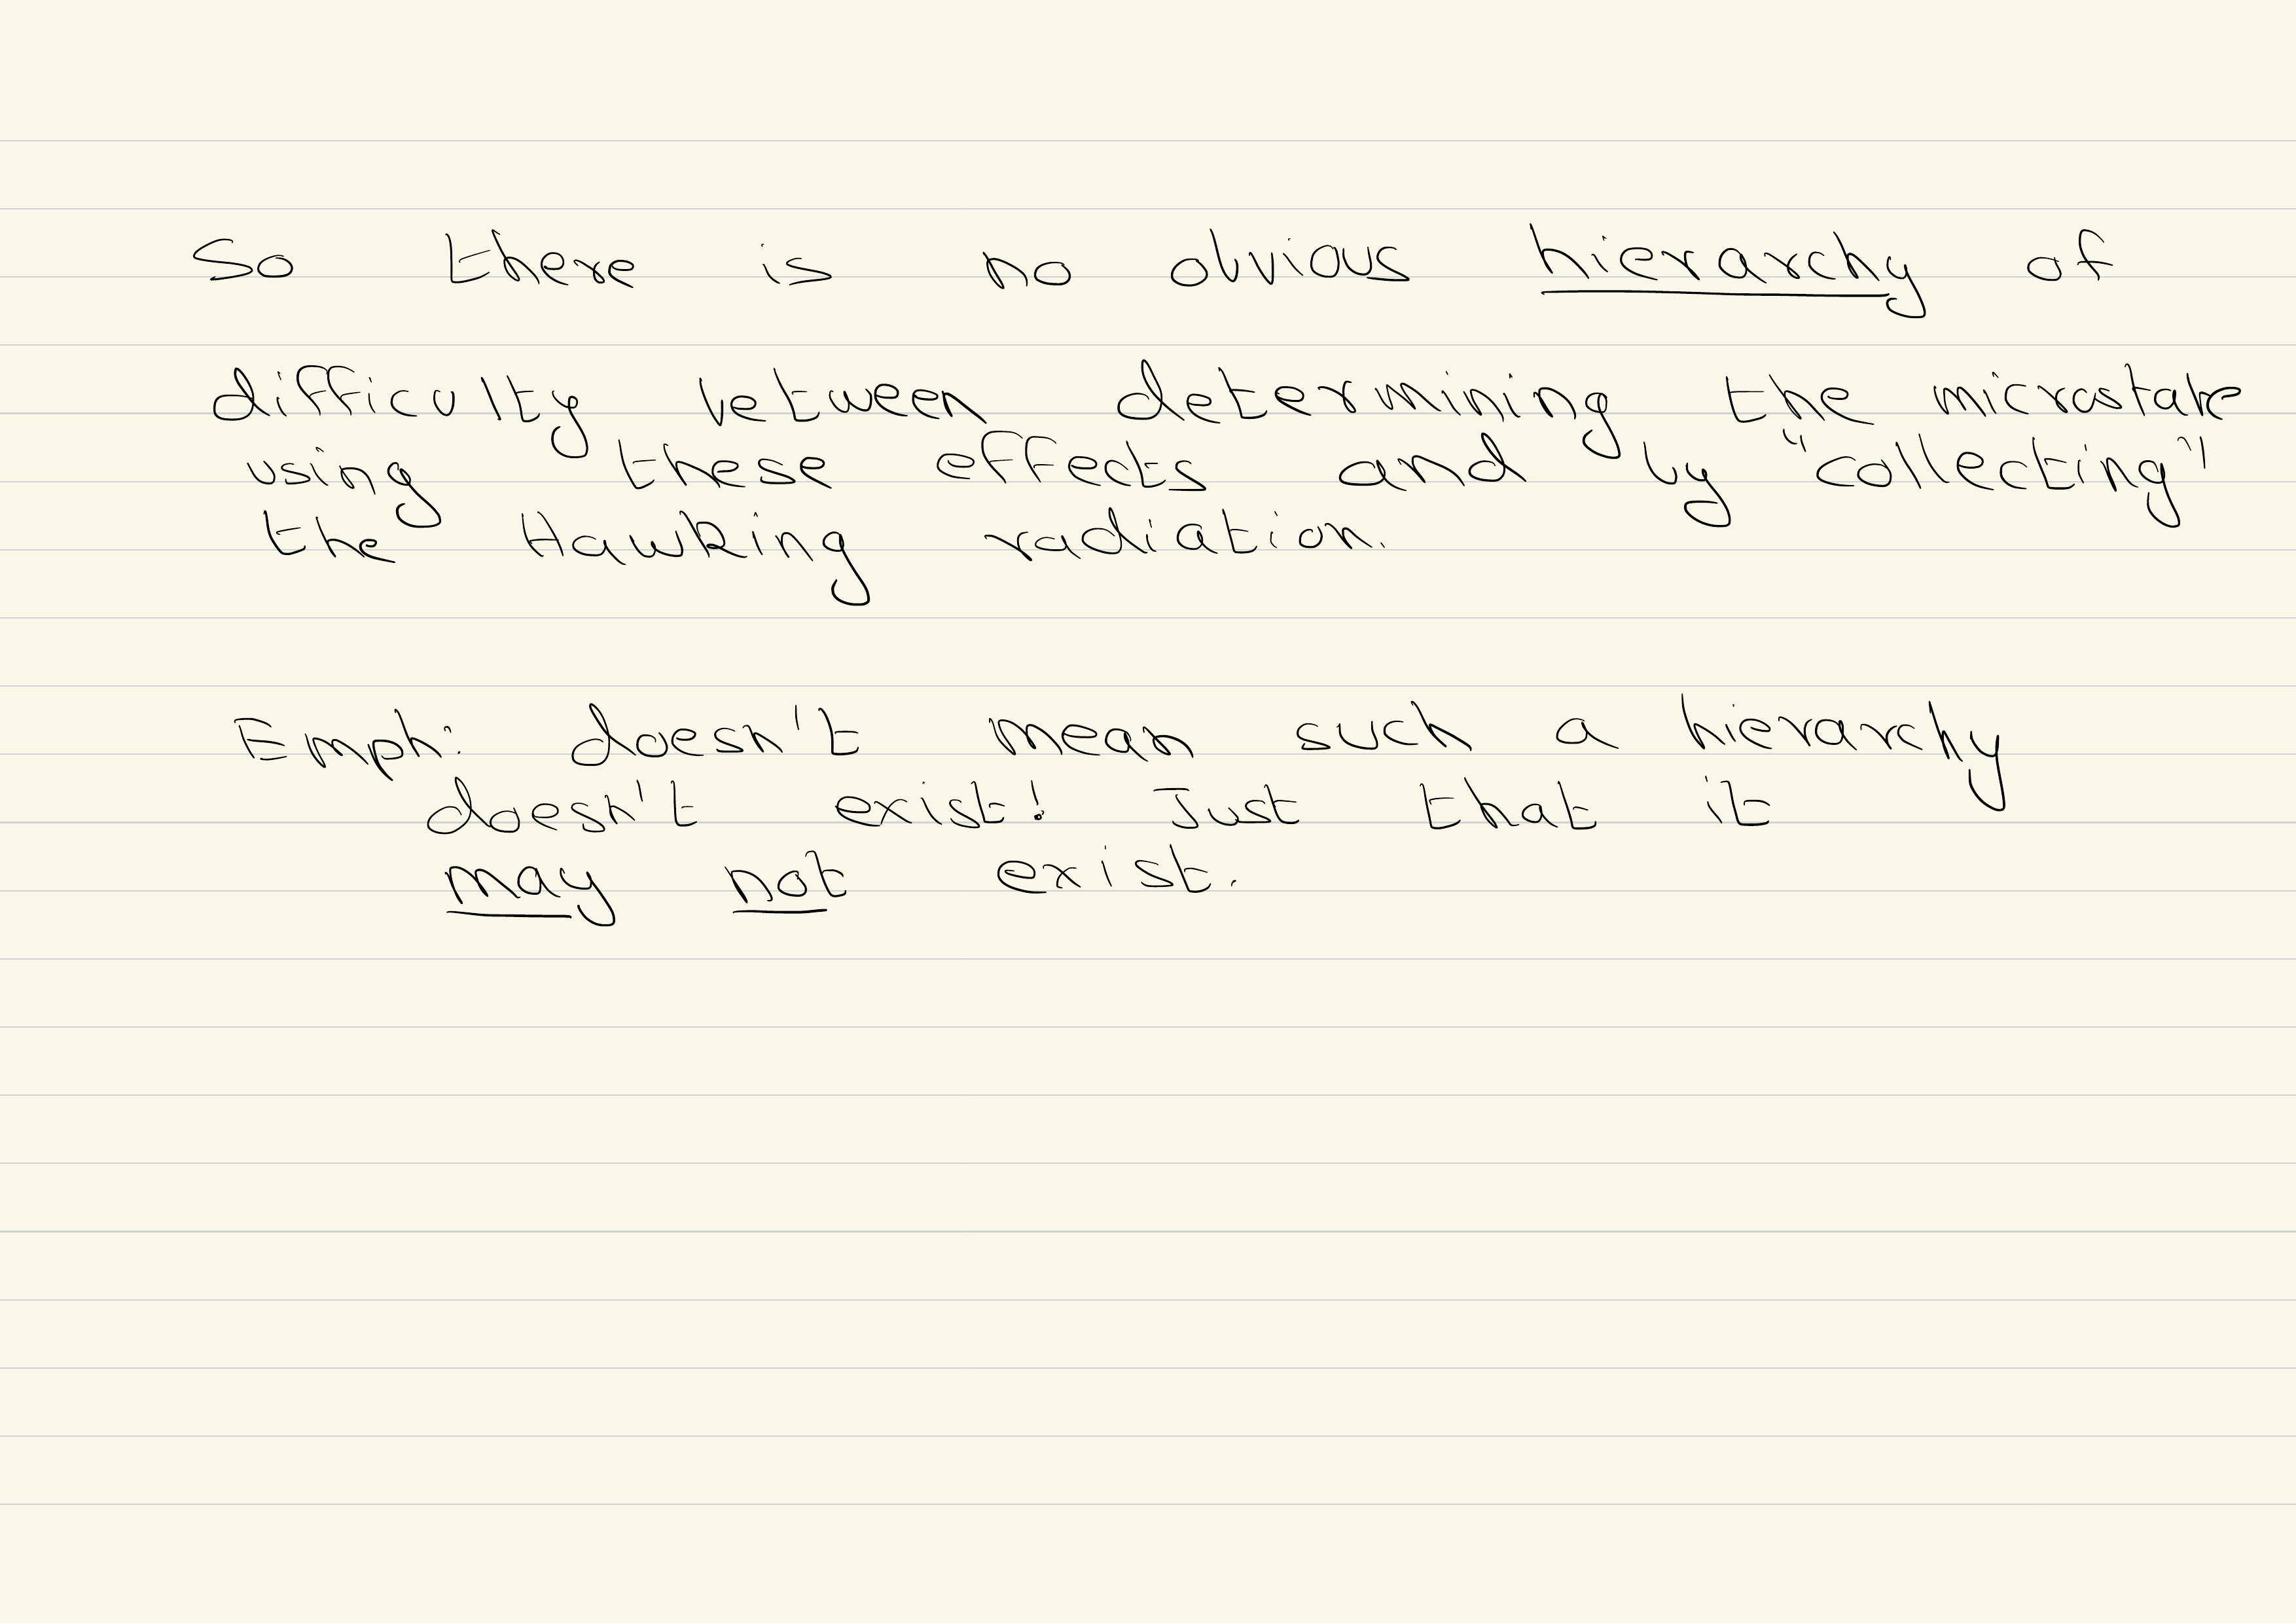 So there is no obvious hierarchy of
difficulty between determining the microstate
using these effects and by "collecting"
the Hawking radiation.
Emph: doesn't mean such a hierarchy
doesn't exist! Just that it
may not exist.